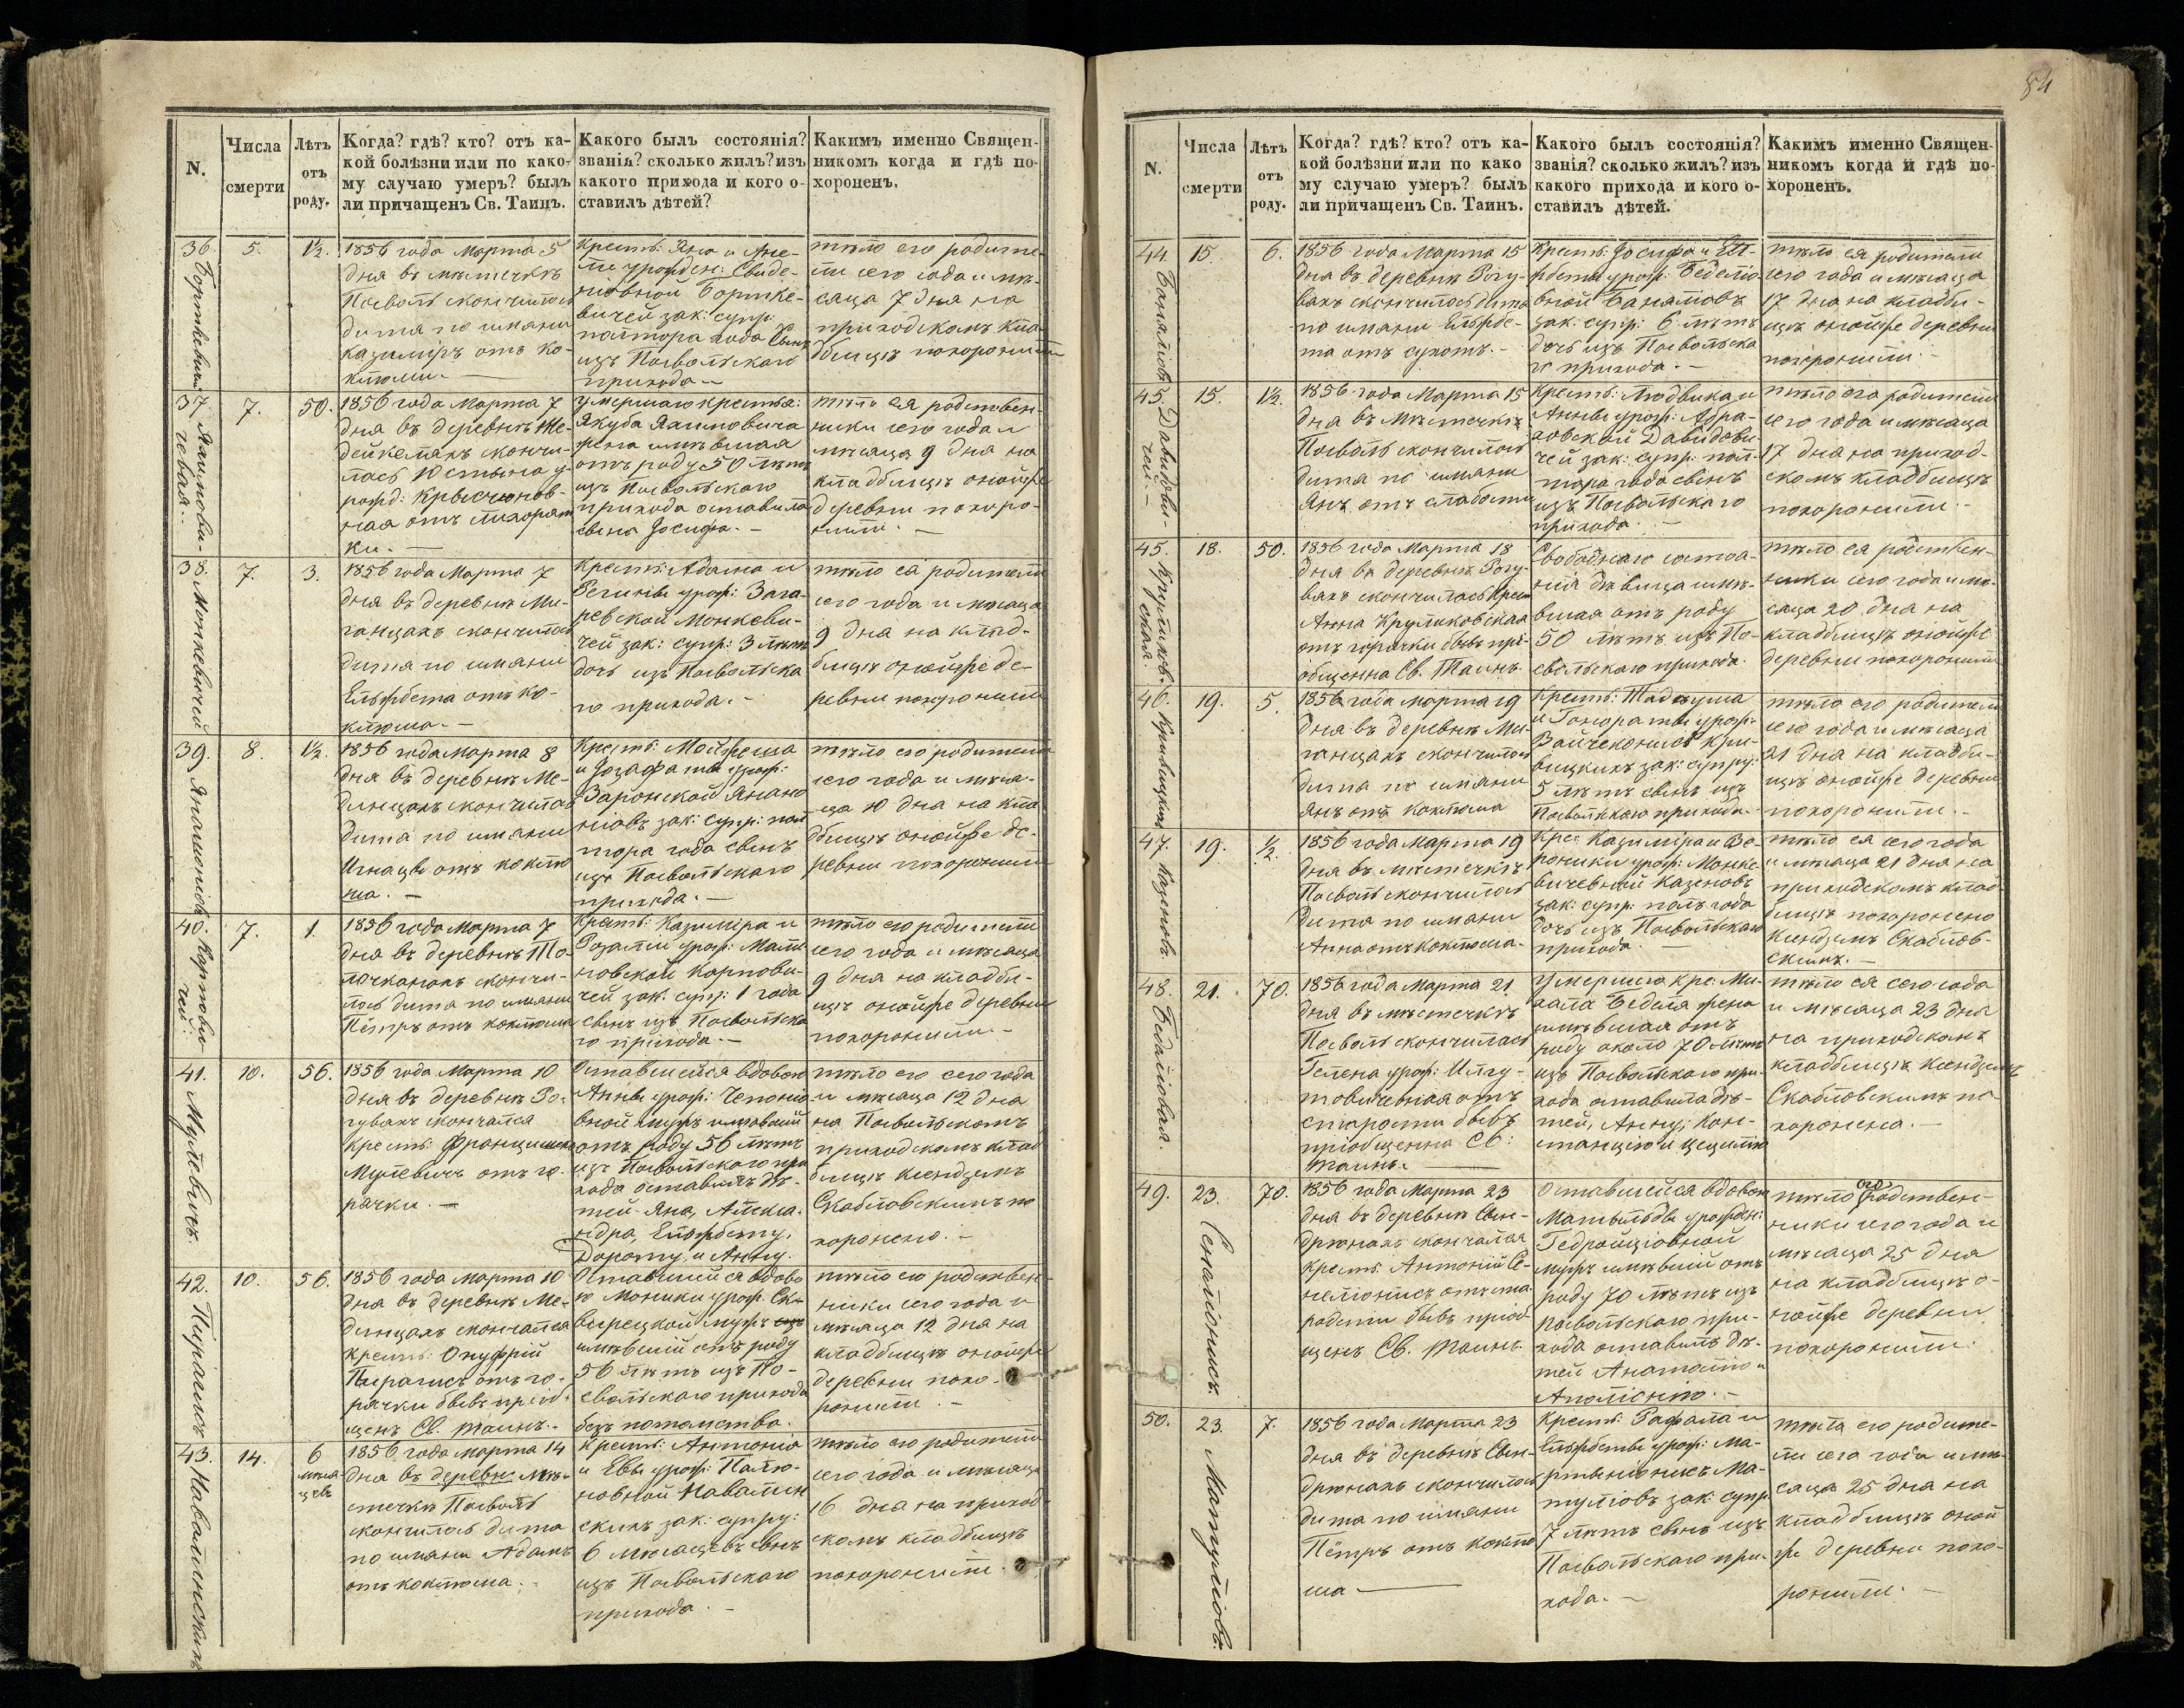 84
N.
Числа смерти
Лѣтъ отъ роду.
Когда? гдѣ? кто? отъ ка-
кой болѣзни или по како-
му случаю умеръ? былъ
ли причащенъ Св. Таинъ.
Какого былъ состоянія?
званія? сколько жилъ? изъ
какого прихода и кого о-
ставилъ дѣтей?
Каким именно Священ-
никомъ когда и гдѣ по-
хороненъ.
36.
5.
1½.
1856 года Марта 5
дня въ мѣстечкѣ
Посволѣ скончилось
дитя по имяни
Казимиръ отъ ко-
клюши.
Крестъ: Яна и Ане-
ли урожден:
Бортке-
вичей зак: супр:
полтора года сынъ
изъ Посвольскаго
прихода
тѣло его родите-
ли сего года и мѣ-
сяца 7 дня на
приходскомъ кла-
дбищѣ похоронили
37. Якимови-
чевая.
7.
50.
1856 года Марта 7
дня въ деревнѣ Же-
дейкелахъ скончи-
лась Юстына у-
рожд:
ная отъ лихорад
ки.
умершаго крестья:
Якуба Якимовича
жена имѣвшая
отъ роду 50 лѣтъ
изъ Посвольскаго
прихода оставила
сына Іосифа.
тѣло ея родствен-
ники сего года и
мѣсяца 9 дня на
кладбищѣ онойже
деревни похоро-
нили.
38. Монкевичей
7.
3.
1856 года Марта 7
дня въ деревнѣ Ми-
ганцахъ скончилось
дитя по имяни
Ельжбета отъ ко-
клюша.
Крестъ: Адама и
Регины урож: Зага-
ревской Монкеви-
чей зак: супр: 3 лѣтъ
дочь изъ Посвольска
го прихода.
тѣло ея родители
сего года и мѣсяца
9 дня на клад-
бищѣ онойже де-
ревни похоронили
39.
8.
1½.
1856 года Марта 8
дня въ деревнѣ Ме-
динцахъ скончилось
дитя по имяни
Игнацы отъ коклю
ша.
Крестъ: Мойжеша
и Іозафаты урож:
Заронской
зак: супр: пол
тора года сынъ
изъ Посвольскаго
прихода.
тѣло его родители
сего года и мѣся-
ца 10 дня на кла
дбищѣ онойже де-
ревни похоронили
40. Карпови-
чей.
7.
1.
1856 года Марта 7
дня въ деревнѣ То-
лочканахъ скончи-
лось дитя по имяни
Пётръ отъ коклюша
Крестъ: Казиміра и
Розаліи урож: Мали
новской Карпови-
чей зак: супр: 1 года
сынъ изъ Посвольска
го прихода.
тѣло его родители
сего года и мѣсяца
9 дня на кладби-
щѣ онойже деревни
похоронили.
41. Мулевичъ.
10.
56.
1856 года Марта 10
дня въ деревнѣ Ро-
гувахъ скончался
крестъ: Францишекъ
Мулевичъ отъ го-
рячки.
Оставшейся вдовою
Анны урож:
вной мужъ имѣвшій
отъ роду 56 лѣтъ
изъ Посвольскаго при
хода оставилъ дѣ-
тей Яна, Алекса-
ндра, Ельжбету,
Дороту и Анну.
тѣло его сего года
и мѣсяца 12 дня
на Посвольскомъ
приходскомъ клад
бищѣ ксендземъ
Скабловскимъ по
хоронено.
42. Пирагисъ
10.
56.
1856 года Марта 10
дня въ деревнѣ Ме-
динцахъ скончался
крестъ: Онуфрій
Пирагисъ отъ го-
рячки бывъ пріоб-
щенъ Св. таинъ.
Оставшейся вдово
ю Моники урож:
мужъ
имѣвшій отъ роду
56 лѣтъ изъ По-
свольскаго прихода
безъ потомства.
тѣло его родствен-
ники сего года и
мѣсяца 12 дня на
кладбищѣ онойже
деревни похо-
ронили.
43. Навалинскихъ
14.
6
мѣся-
цевъ
1856 года Марта 14
дня въ деревн: мѣ-
стечкѣ Посволѣ
скончилось дитя
по имяни Адамъ
отъ коклюша.
Крестъ: Антонія
и Евы урож: Палю-
новной Навалин
скихъ зак: супру:
6 мѣсяцевъ сынъ
изъ Посвольскаго
прихода.
тѣло его родители
сего года и мѣсяца
16 дня на приход-
скомъ кладбищѣ
похоронили.
N.
Числа смерти
Лѣтъ отъ роду.
Когда? гдѣ? кто? отъ ка-
кой болѣзни или по како
му случаю умеръ? былъ
ли причащенъ Св. Таинъ.
Какого былъ состоянія?
званія? сколько жилъ? изъ
какого прихода и кого о-
ставилъ дѣтей.
Каким именно Священ-
никомъ когда и гдѣ по-
хороненъ.
44.
15.
6.
1856 года Марта 15
дня въ деревнѣ Рогу-
вахъ скончилось дитя
по имяни Ельжбе-
та отъ сухотъ.
Крестъ: Іосифа и Ель-
жбеты урож:
вной
зак: супр: 6 лѣтъ
дочь изъ Посвольска
го прихода.
тѣло ея родители
сего года и мѣсяца
17 дня на кладби-
щѣ онойже деревни
похоронили.
45. Давидови-
чей.
15.
1½.
1856 года Марта 15
дня въ мѣстечкѣ
Посволѣ скончилось
дитя по имяни
Янъ отъ слабости
Крестъ: Людвика и
Анны урож: Абра-
мовской Давидови-
чей зак: супр: пол-
тора года сынъ
изъ Посвольскаго
прихода.
тѣло его родители
сего года и мѣсяца
17 дня на приход-
скомъ кладбищѣ
похоронили.
45. Круликов-
ская.
18.
50.
1856 года Марта 18
дня въ деревнѣ Рогу-
вахъ скончилась крест
Анна Круликовская
отъ горячки бывъ прі-
общенна Св. Таинъ.
Свободнаго состоя-
нія дѣвица имѣ-
вшая отъ роду
50 лѣтъ изъ По-
свольскаго прихода.
тѣло ея родствен-
ники сего года и мѣ-
сяца 20 дня на
кладбищѣ онойже
деревни похоронили
46. Кривицкихъ
19.
5.
1856 года Марта 19
дня въ деревнѣ Ми-
ганцахъ скончилось
дитя по имяни
Янъ отъ коклюша
Крестъ: Тадеуша
и Гонораты урож:
Кри-
вицкихъ зак: супру:
5 лѣтъ сынъ изъ
Посвольскаго прихода.
тѣло его родители
сего года и мѣсяца
21 дня на кладби-
щѣ онойже деревни
похоронили.
47. Казеновъ
19.
½.
1856 года Марта 19
дня въ мѣстечкѣ
Посволѣ скончилось
дитя по имяни
Анна отъ коклюша.
Крес: Казиміра и Ве-
роники урож: Монке-
вичевной Казеновъ
зак: супр: полъ года
дочь изъ Посвольскаго
прихода.
тѣло ея сего года
и мѣсяца 21 дня на
приходскомъ клад-
бищѣ похоронено
Ксендземъ Скаблов-
скимъ.
48.
21.
70.
1856 года Марта 21
дня въ мѣстечкѣ
Посволѣ скончилась
Гелена урож:
отъ
старости бывъ
пріобщенна Св:
таинъ.
Умершаго крес: Ми-
хала Беделя жена
имѣвшая отъ
роду около 70 лѣтъ
изъ Посвольскаго при-
хода оставила дѣ-
тей, Анну, Кон-
станцію и Цецилію
тѣло ея сего года
и мѣсяца 23 дня
на приходскомъ
кладбищѣ ксендземъ
Скабловскимъ по-
хоронена.
49.
23.
70.
1856 года Марта 23
дня въ деревнѣ Свен-
дрюнахъ скончался
крестъ: Антоній Се-
неліонисъ отъ ста
рости бывъ пріоб
щенъ Св. таинъ.
Оставшейся вдовою
Матыльды урожден:
Гедройціовной
мужъ имѣвшій отъ
роду 70 лѣтъ изъ
Посвольскаго при-
хода оставилъ дѣ-
тей Анатолію и
Аполіонію.
тѣло его родствен-
ники сего года и
мѣсяца 25 дня
на кладбищѣ о-
нойже деревни
похоронили.
50. Матуліовъ.
23.
7.
1856 года Марта 23
дня въ деревнѣ Свен-
дрюнахъ скончилось
дитя по имяни
Пётръ отъ коклю
ша
Крестъ: Рафала и
Ельжбеты урож: Ма-
ртыніонисъ Ма-
туліовъ зак: супр:
7 лѣтъ сынъ изъ
Посвольскаго при-
хода.
тѣла его родите-
ли сего года и мѣ-
сяца 25 дня на
кладбищѣ оной
же деревни похо-
ронили.